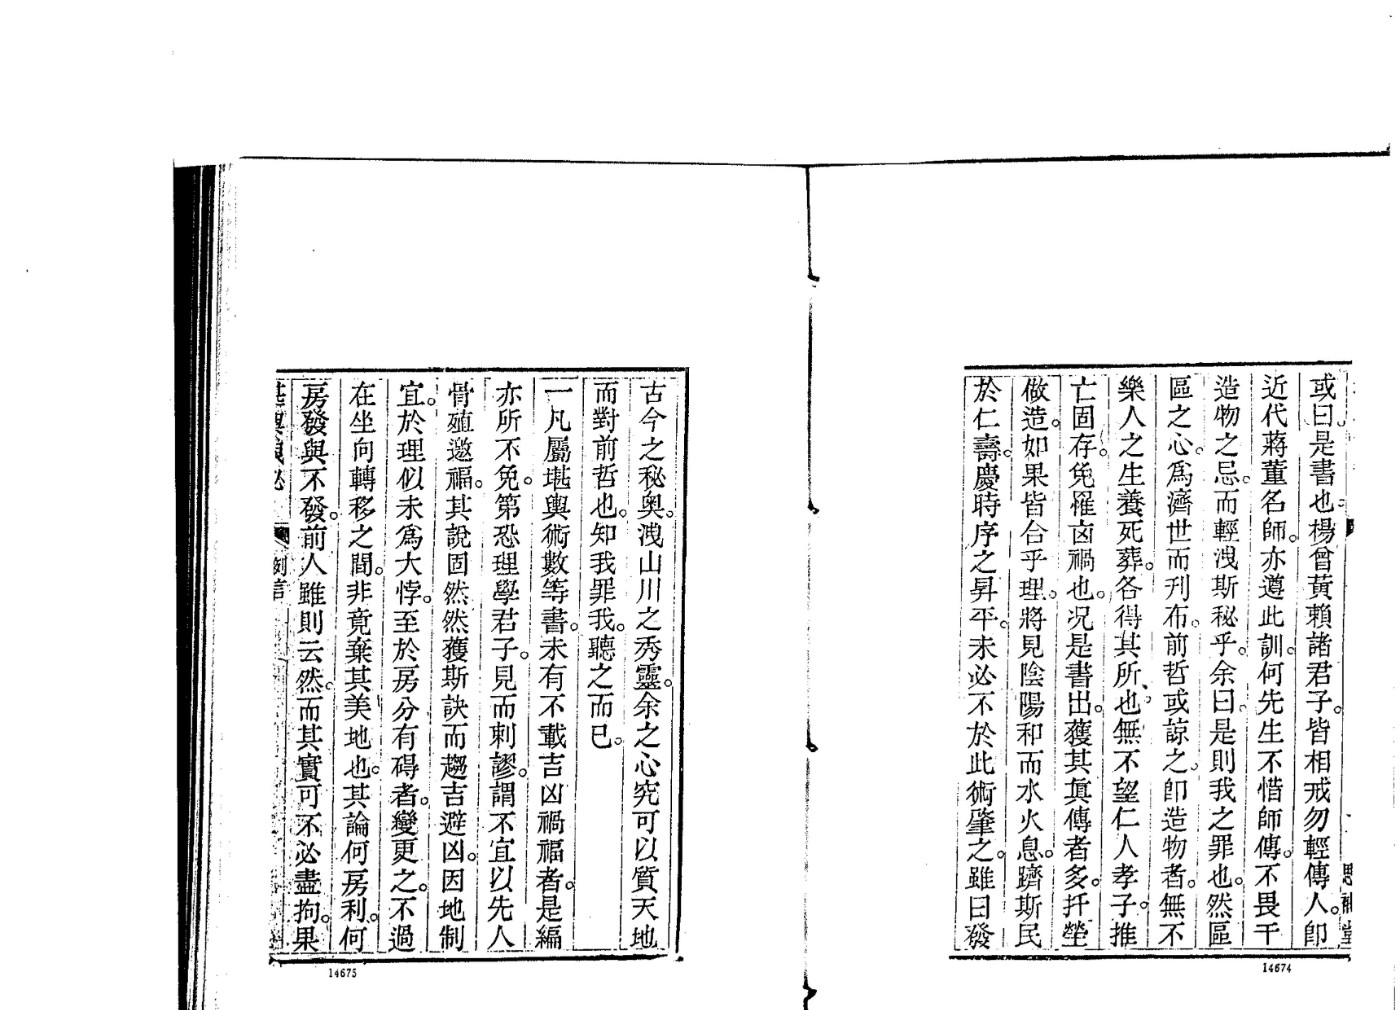 或曰。是書也楊曾黃賴諸君子。皆相戒勿輕傳人。卽
近代蔣董名師。亦遵此訓。何先生不惜師傳。不畏干
造物之忌。而輕洩斯秘乎。余曰。是則我之罪也。然區
區之心。爲濟世而刊布。前哲或諒之。卽造物者。無不
樂人之生養死葬。各得其所也。無不望仁人孝子。推
亡固存。免罹凶禍也。况是書出。獲其眞傳者多。扦塋
做造。如果皆合乎理。將見陰陽和而水火息。躋斯民
於仁壽。慶時序之昇平。未必不於此術肇之。雖曰發
14674
古今之秘奧。洩山川之秀靈。余之心究可以質天地
而對前哲也。知我罪我。聽之而已。
一凡屬堪輿術數等書。未有不載吉凶禍福者。是編
亦所不免。第恐理學君子。見而刺謬。謂不宜以先人
骨殖邀福。其說固然。然獲斯訣而趨吉避凶。因地制
宜。於理似未爲大悖。至於房分有碍者。變更之。不過
在坐向轉移之間。非竟棄其美地也。其論何房利。何
房發與不發。前人雖則云然。而其實可不必盡拘。果
14675